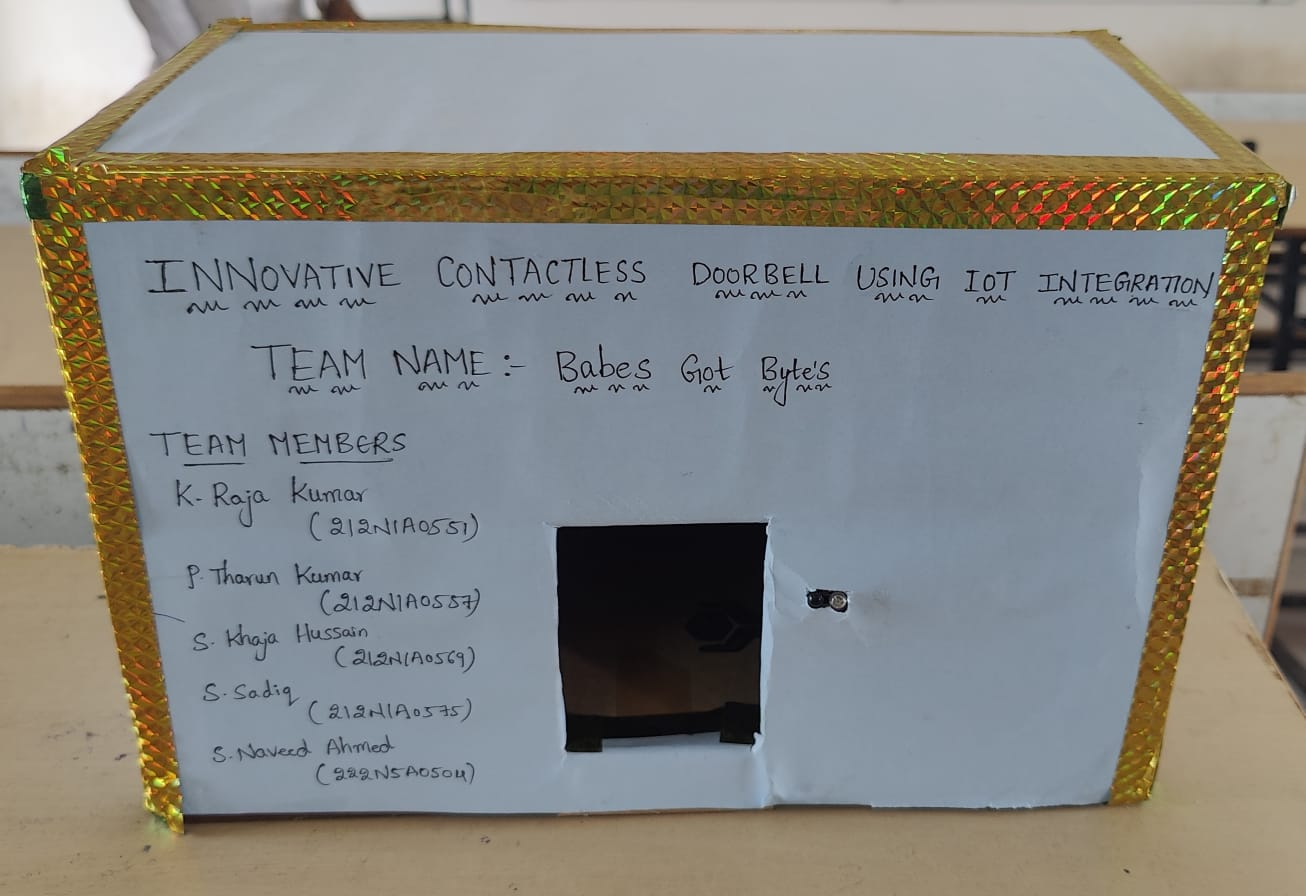 INNOVATIVE CONTACTLESS DOORBELL USING IOT INTEGRATION
TEAM NAME :- Babes Got Byte's
TEAM MEMBERS
K. Raja Kumar
(212N1A0551)
P. Tharun Kumar
(212N1A0557)
S. Khaja Hussain
(212N1A0569)
S. Sadiq
(212N1A0575)
S. Naveed Ahmed
(222N5A0504)